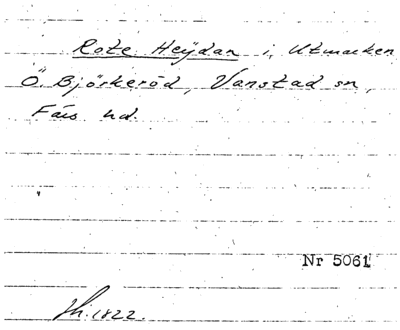 Rote Heÿdan i, Utmarken
Ö Björkeröd, Vanstad sn,
Färs hd.
Nr 5061
Th. 1822.